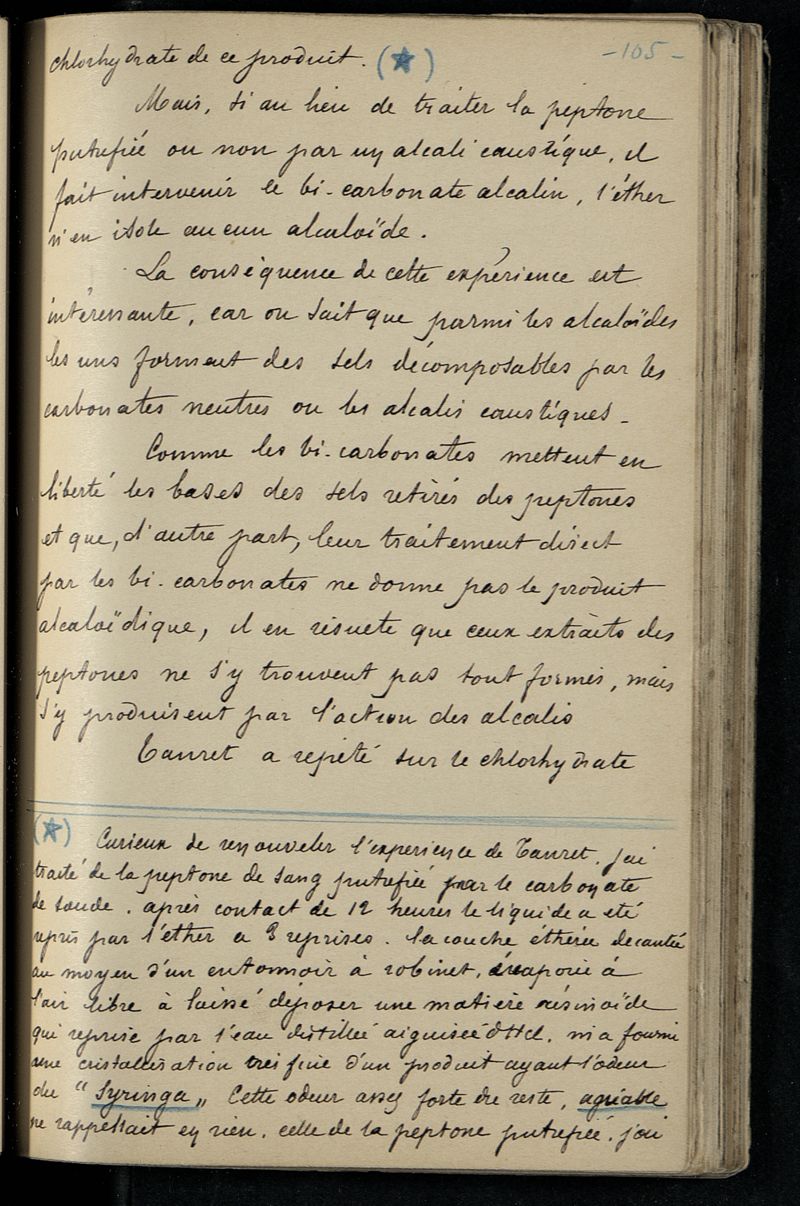 -105-
chlorhydrate de ce produit. (★)
Mais, si au lieu de traiter la peptone
putrefiée ou non par un alcali caustique, il
fait intervenir le bi-carbonate alcalin, l'éther
n'en isole aucun alcaloïde.
La conséquence de cette expérience est
intéressante, car on sait que parmi les alcaloïdes
les uns forment des sels décomposables par les
carbonates neutres ou les alcalis caustiques -
Comme les bi-carbonates mettent en
liberté les bases des sels retirés des peptones
et que, d'autre part, leur traitement direct
par les bi-carbonates ne donne pas le produit
alcaloïdique, il en résulte que ceux extraits des
peptones ne s'y trouvent pas tout formés, mais
s'y produisent par l'action des alcalis
Tanret a répété sur le chlorhydrate
(★) Curieux de renouveler l'experience de Tanret. j'ai
traité de la peptone de sang putrefiée par le carbonate
de soude. après contact de 12 heures le liquide a été
repris par l'éther a 3 reprises. la couche éthérée decantée
au moyen d'un entonnoir à robinet, évaporée à
l'air libre à laissé déposer une matière résinoïde
qui reprise par l'eau distillée aiguisée d'Hcl. m'a fourni
une cristallisation tres fine d'un produit ayant l'odeur
du "Syringa" Cette odeur assez forte du reste, agréable
ne rappelait en rien. celle de la peptone putrefiée. j'ai